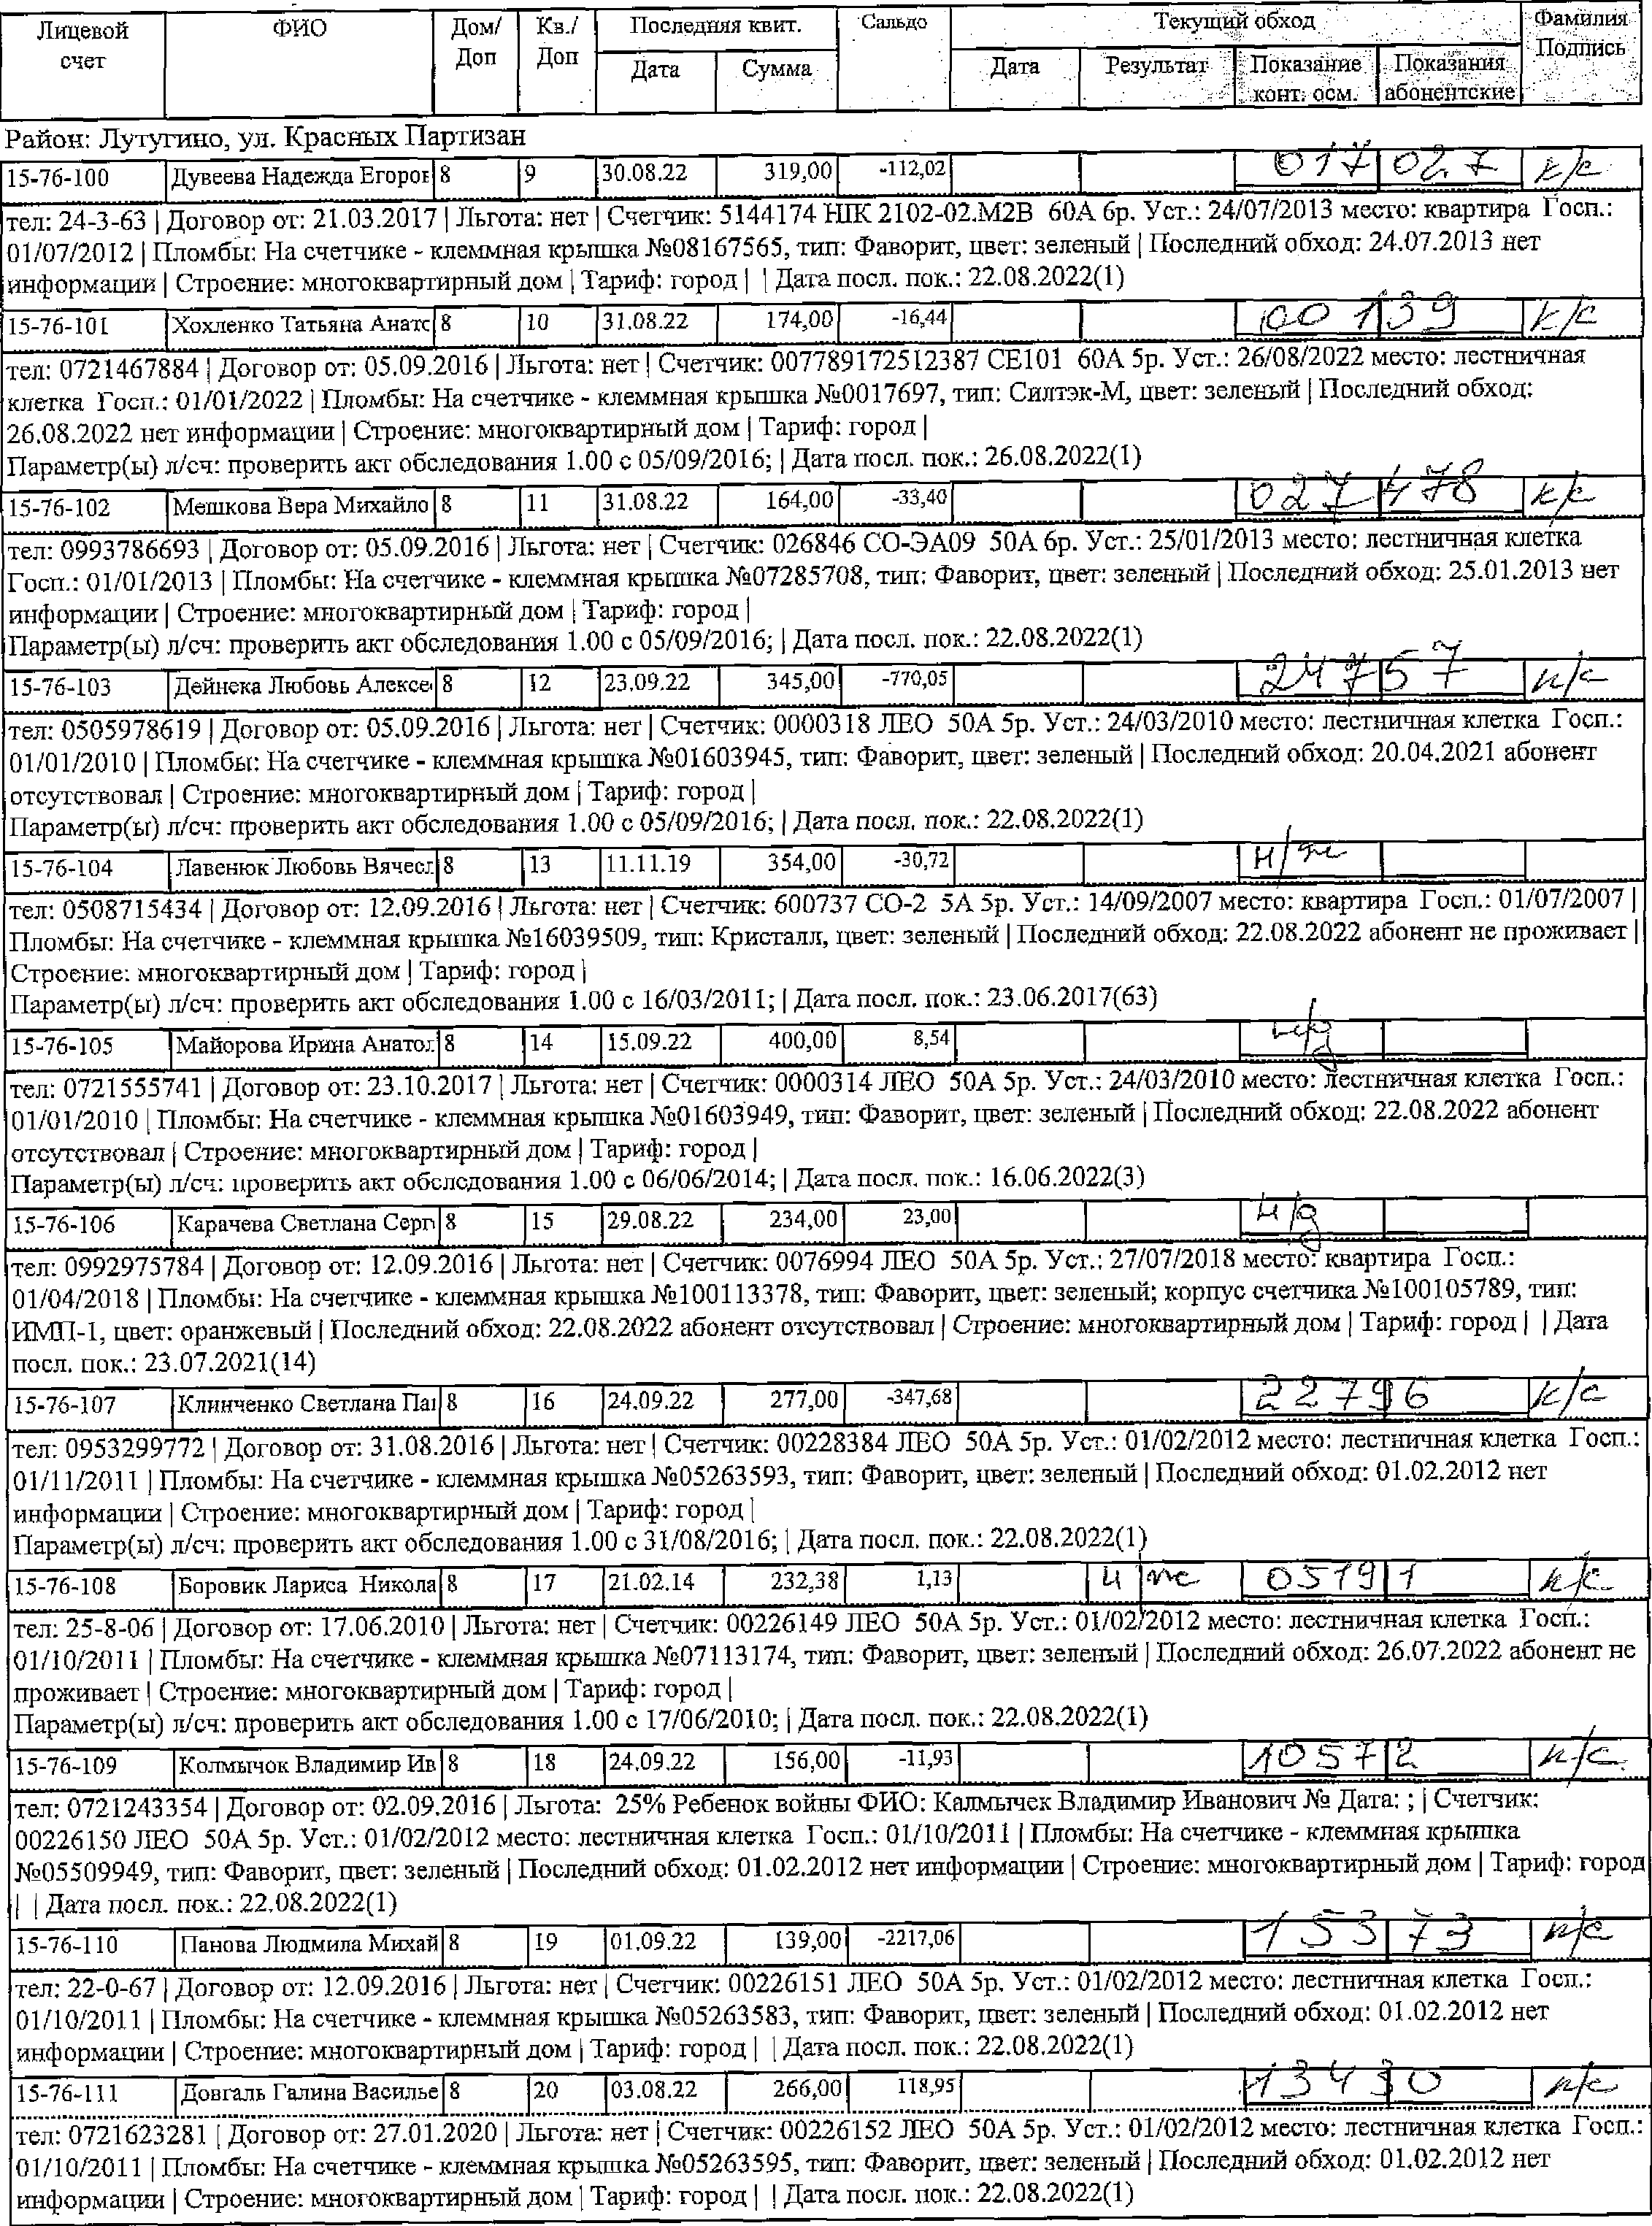 Лицевой счет | ФИО | Дом/Доп | Кв./Доп | Последняя квит. Дата | Сумма | Сальдо | Текущий обход Дата | Результат | Показание конт. осм. | Показания абонентские | Фамилия Подпись
Район: Лутугино, ул. Красных Партизан
15-76-100 Дувеева Надежда Егоров 8 9 30.08.22 319,00 -112,02 017027 к/с
тел: 24-3-63 | Договор от: 21.03.2017 | Льгота: нет | Счетчик: 5144174 НІК 2102-02.М2В 60А 6р. Уст.: 24/07/2013 место: квартира Госп.:
01/07/2012 | Пломбы: На счетчике - клеммная крышка №08167565, тип: Фаворит, цвет: зеленый | Последний обход: 24.07.2013 нет
информации | Строение: многоквартирный дом | Тариф: город | | Дата посл. пок.: 22.08.2022(1)
15-76-101 Хохленко Татьяна Анато 8 10 31.08.22 174,00 -16,44 00139 к/с
тел: 0721467884 | Договор от: 05.09.2016 | Льгота: нет | Счетчик: 007789172512387 СЕ101 60А 5р. Уст.: 26/08/2022 место: лестничная
клетка Госп.: 01/01/2022 | Пломбы: На счетчике - клеммная крышка №0017697, тип: Силтэк-М, цвет: зеленый | Последний обход:
26.08.2022 нет информации | Строение: многоквартирный дом | Тариф: город |
Параметр(ы) л/сч: проверить акт обследования 1.00 с 05/09/2016; | Дата посл. пок.: 26.08.2022(1)
15-76-102 Мешкова Вера Михайло 8 11 31.08.22 164,00 -33,40 027478 к/с
тел: 0993786693 | Договор от: 05.09.2016 | Льгота: нет | Счетчик: 026846 СО-ЭА09 50А 6р. Уст.: 25/01/2013 место: лестничная клетка
Госп.: 01/01/2013 | Пломбы: На счетчике - клеммная крышка №07285708, тип: Фаворит, цвет: зеленый | Последний обход: 25.01.2013 нет
информации | Строение: многоквартирный дом | Тариф: город |
Параметр(ы) л/сч: проверить акт обследования 1.00 с 05/09/2016; | Дата посл. пок.: 22.08.2022(1)
15-76-103 Дейнека Любовь Алексе 8 12 23.09.22 345,00 -770,05 24757 к/с
тел: 0505978619 | Договор от: 05.09.2016 | Льгота: нет | Счетчик: 0000318 ЛЕО 50А 5р. Уст.: 24/03/2010 место: лестничная клетка Госп.:
01/01/2010 | Пломбы: На счетчике - клеммная крышка №01603945, тип: Фаворит, цвет: зеленый | Последний обход: 20.04.2021 абонент
отсутствовал | Строение: многоквартирный дом | Тариф: город |
Параметр(ы) л/сч: проверить акт обследования 1.00 с 05/09/2016; | Дата посл. пок.: 22.08.2022(1)
15-76-104 Лавенюк Любовь Вячесл 8 13 11.11.19 354,00 -30,72 н/ж
тел: 0508715434 | Договор от: 12.09.2016 | Льгота: нет | Счетчик: 600737 СО-2 5А 5р. Уст.: 14/09/2007 место: квартира Госп.: 01/07/2007 |
Пломбы: На счетчике - клеммная крышка №16039509, тип: Кристалл, цвет: зеленый | Последний обход: 22.08.2022 абонент не проживает |
Строение: многоквартирный дом | Тариф: город |
Параметр(ы) л/сч: проверить акт обследования 1.00 с 16/03/2011; | Дата посл. пок.: 23.06.2017(63)
15-76-105 Майорова Ирина Анатол 8 14 15.09.22 400,00 8,54 н/д
тел: 0721555741 | Договор от: 23.10.2017 | Льгота: нет | Счетчик: 0000314 ЛЕО 50А 5р. Уст.: 24/03/2010 место: лестничная клетка Госп.:
01/01/2010 | Пломбы: На счетчике - клеммная крышка №01603949, тип: Фаворит, цвет: зеленый | Последний обход: 22.08.2022 абонент
отсутствовал | Строение: многоквартирный дом | Тариф: город |
Параметр(ы) л/сч: проверить акт обследования 1.00 с 06/06/2014; | Дата посл. пок.: 16.06.2022(3)
15-76-106 Карачева Светлана Серг 8 15 29.08.22 234,00 23,00 н/д
тел: 0992975784 | Договор от: 12.09.2016 | Льгота: нет | Счетчик: 0076994 ЛЕО 50А 5р. Уст.: 27/07/2018 место: квартира Госп.:
01/04/2018 | Пломбы: На счетчике - клеммная крышка №100113378, тип: Фаворит, цвет: зеленый; корпус счетчика №100105789, тип:
ИМП-1, цвет: оранжевый | Последний обход: 22.08.2022 абонент отсутствовал | Строение: многоквартирный дом | Тариф: город | | Дата
посл. пок.: 23.07.2021(14)
15-76-107 Клинченко Светлана Па 8 16 24.09.22 277,00 -347,68 22796 к/с
тел: 0953299772 | Договор от: 31.08.2016 | Льгота: нет | Счетчик: 00228384 ЛЕО 50А 5р. Уст.: 01/02/2012 место: лестничная клетка Госп.:
01/11/2011 | Пломбы: На счетчике - клеммная крышка №05263593, тип: Фаворит, цвет: зеленый | Последний обход: 01.02.2012 нет
информации | Строение: многоквартирный дом | Тариф: город |
Параметр(ы) л/сч: проверить акт обследования 1.00 с 31/08/2016; | Дата посл. пок.: 22.08.2022(1)
15-76-108 Боровик Лариса Никола 8 17 21.02.14 232,38 1,13 н/ж 05191 к/с
тел: 25-8-06 | Договор от: 17.06.2010 | Льгота: нет | Счетчик: 00226149 ЛЕО 50А 5р. Уст.: 01/02/2012 место: лестничная клетка Госп.:
01/10/2011 | Пломбы: На счетчике - клеммная крышка №07113174, тип: Фаворит, цвет: зеленый | Последний обход: 26.07.2022 абонент не
проживает | Строение: многоквартирный дом | Тариф: город |
Параметр(ы) л/сч: проверить акт обследования 1.00 с 17/06/2010; | Дата посл. пок.: 22.08.2022(1)
15-76-109 Колмычок Владимир Ив 8 18 24.09.22 156,00 -11,93 10572 к/с
тел: 0721243354 | Договор от: 02.09.2016 | Льгота: 25% Ребенок войны ФИО: Калмычек Владимир Иванович № Дата: ; | Счетчик:
00226150 ЛЕО 50А 5р. Уст.: 01/02/2012 место: лестничная клетка Госп.: 01/10/2011 | Пломбы: На счетчике - клеммная крышка
№05509949, тип: Фаворит, цвет: зеленый | Последний обход: 01.02.2012 нет информации | Строение: многоквартирный дом | Тариф: город
| | Дата посл. пок.: 22.08.2022(1)
15-76-110 Панова Людмила Михай 8 19 01.09.22 139,00 -2217,06 15373 к/с
тел: 22-0-67 | Договор от: 12.09.2016 | Льгота: нет | Счетчик: 00226151 ЛЕО 50А 5р. Уст.: 01/02/2012 место: лестничная клетка Госп.:
01/10/2011 | Пломбы: На счетчике - клеммная крышка №05263583, тип: Фаворит, цвет: зеленый | Последний обход: 01.02.2012 нет
информации | Строение: многоквартирный дом | Тариф: город | | Дата посл. пок.: 22.08.2022(1)
15-76-111 Довгаль Галина Василье 8 20 03.08.22 266,00 118,95 13430 к/с
тел: 0721623281 | Договор от: 27.01.2020 | Льгота: нет | Счетчик: 00226152 ЛЕО 50А 5р. Уст.: 01/02/2012 место: лестничная клетка Госп.:
01/10/2011 | Пломбы: На счетчике - клеммная крышка №05263595, тип: Фаворит, цвет: зеленый | Последний обход: 01.02.2012 нет
информации | Строение: многоквартирный дом | Тариф: город | | Дата посл. пок.: 22.08.2022(1)